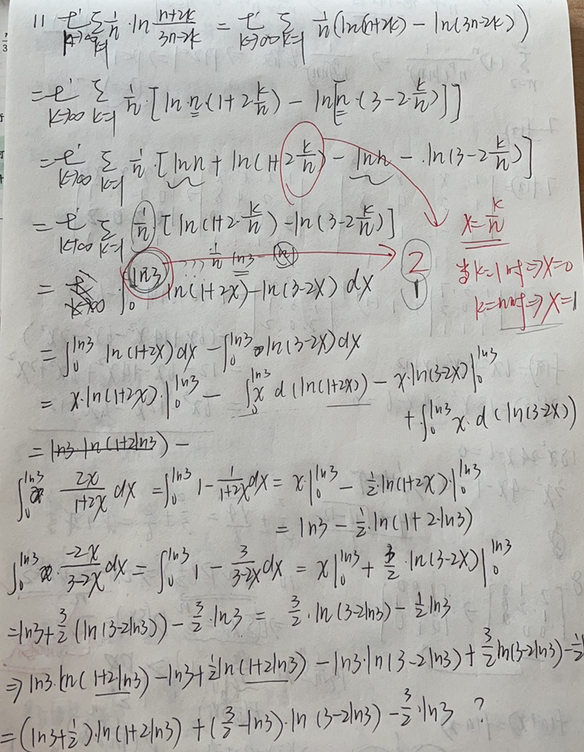 11 lim k→∞ Σ k=1 1/n · ln (n+2k)/(3n-2k) = lim k→∞ Σ k=1 1/n (ln(n+2k) - ln(3n-2k))
= lim k→∞ Σ k=1 1/n · [ln n·(1+2 k/n) - ln[n·(3-2·k/n)]]
= lim k→∞ Σ k=1 1/n · [ln n + ln(1+2 k/n) - ln n - ln(3-2 k/n)]
= lim k→∞ Σ k=1 1/n [ln(1+2·k/n) - ln(3-2 k/n)]
x = k/n
当k=1时⇒x=0
k=n时⇒x=1
= ∫₀^ln3 ln(1+2x) - ln(3-2x) dx
2
1
= ∫₀^ln3 ln(1+2x) dx - ∫₀^ln3 ln(3-2x) dx
= x·ln(1+2x)·|₀^ln3 - ∫₀^ln3 x d(ln(1+2x)) - x·ln(3-2x)|₀^ln3
+ ∫₀^ln3 x·d(ln(3-2x))
= ln3·ln(1+2ln3) -
∫₀^ln3 2x/(1+2x) dx = ∫₀^ln3 1 - 1/(1+2x) dx = x·|₀^ln3 - 1/2 ln(1+2x)·|₀^ln3
= ln3 - 1/2·ln(1+2·ln3)
∫₀^ln3 · -2x/(3-2x) dx = ∫₀^ln3 1 - 3/(3-2x) dx = x|₀^ln3 + 3/2·ln(3-2x)|₀^ln3
= ln3 + 3/2(ln(3-2ln3)) - 3/2·ln3 = 3/2·ln(3-2ln3) - 1/2 ln3
⇒ ln3·ln(1+2ln3) - ln3 + 1/2 ln(1+2ln3) - ln3·ln(3-2ln3) + 3/2 ln(3-2ln3) - 1/2
= (ln3+1/2)·ln(1+2ln3) + (3/2-ln3)·ln(3-2ln3) - 3/2·ln3 ?